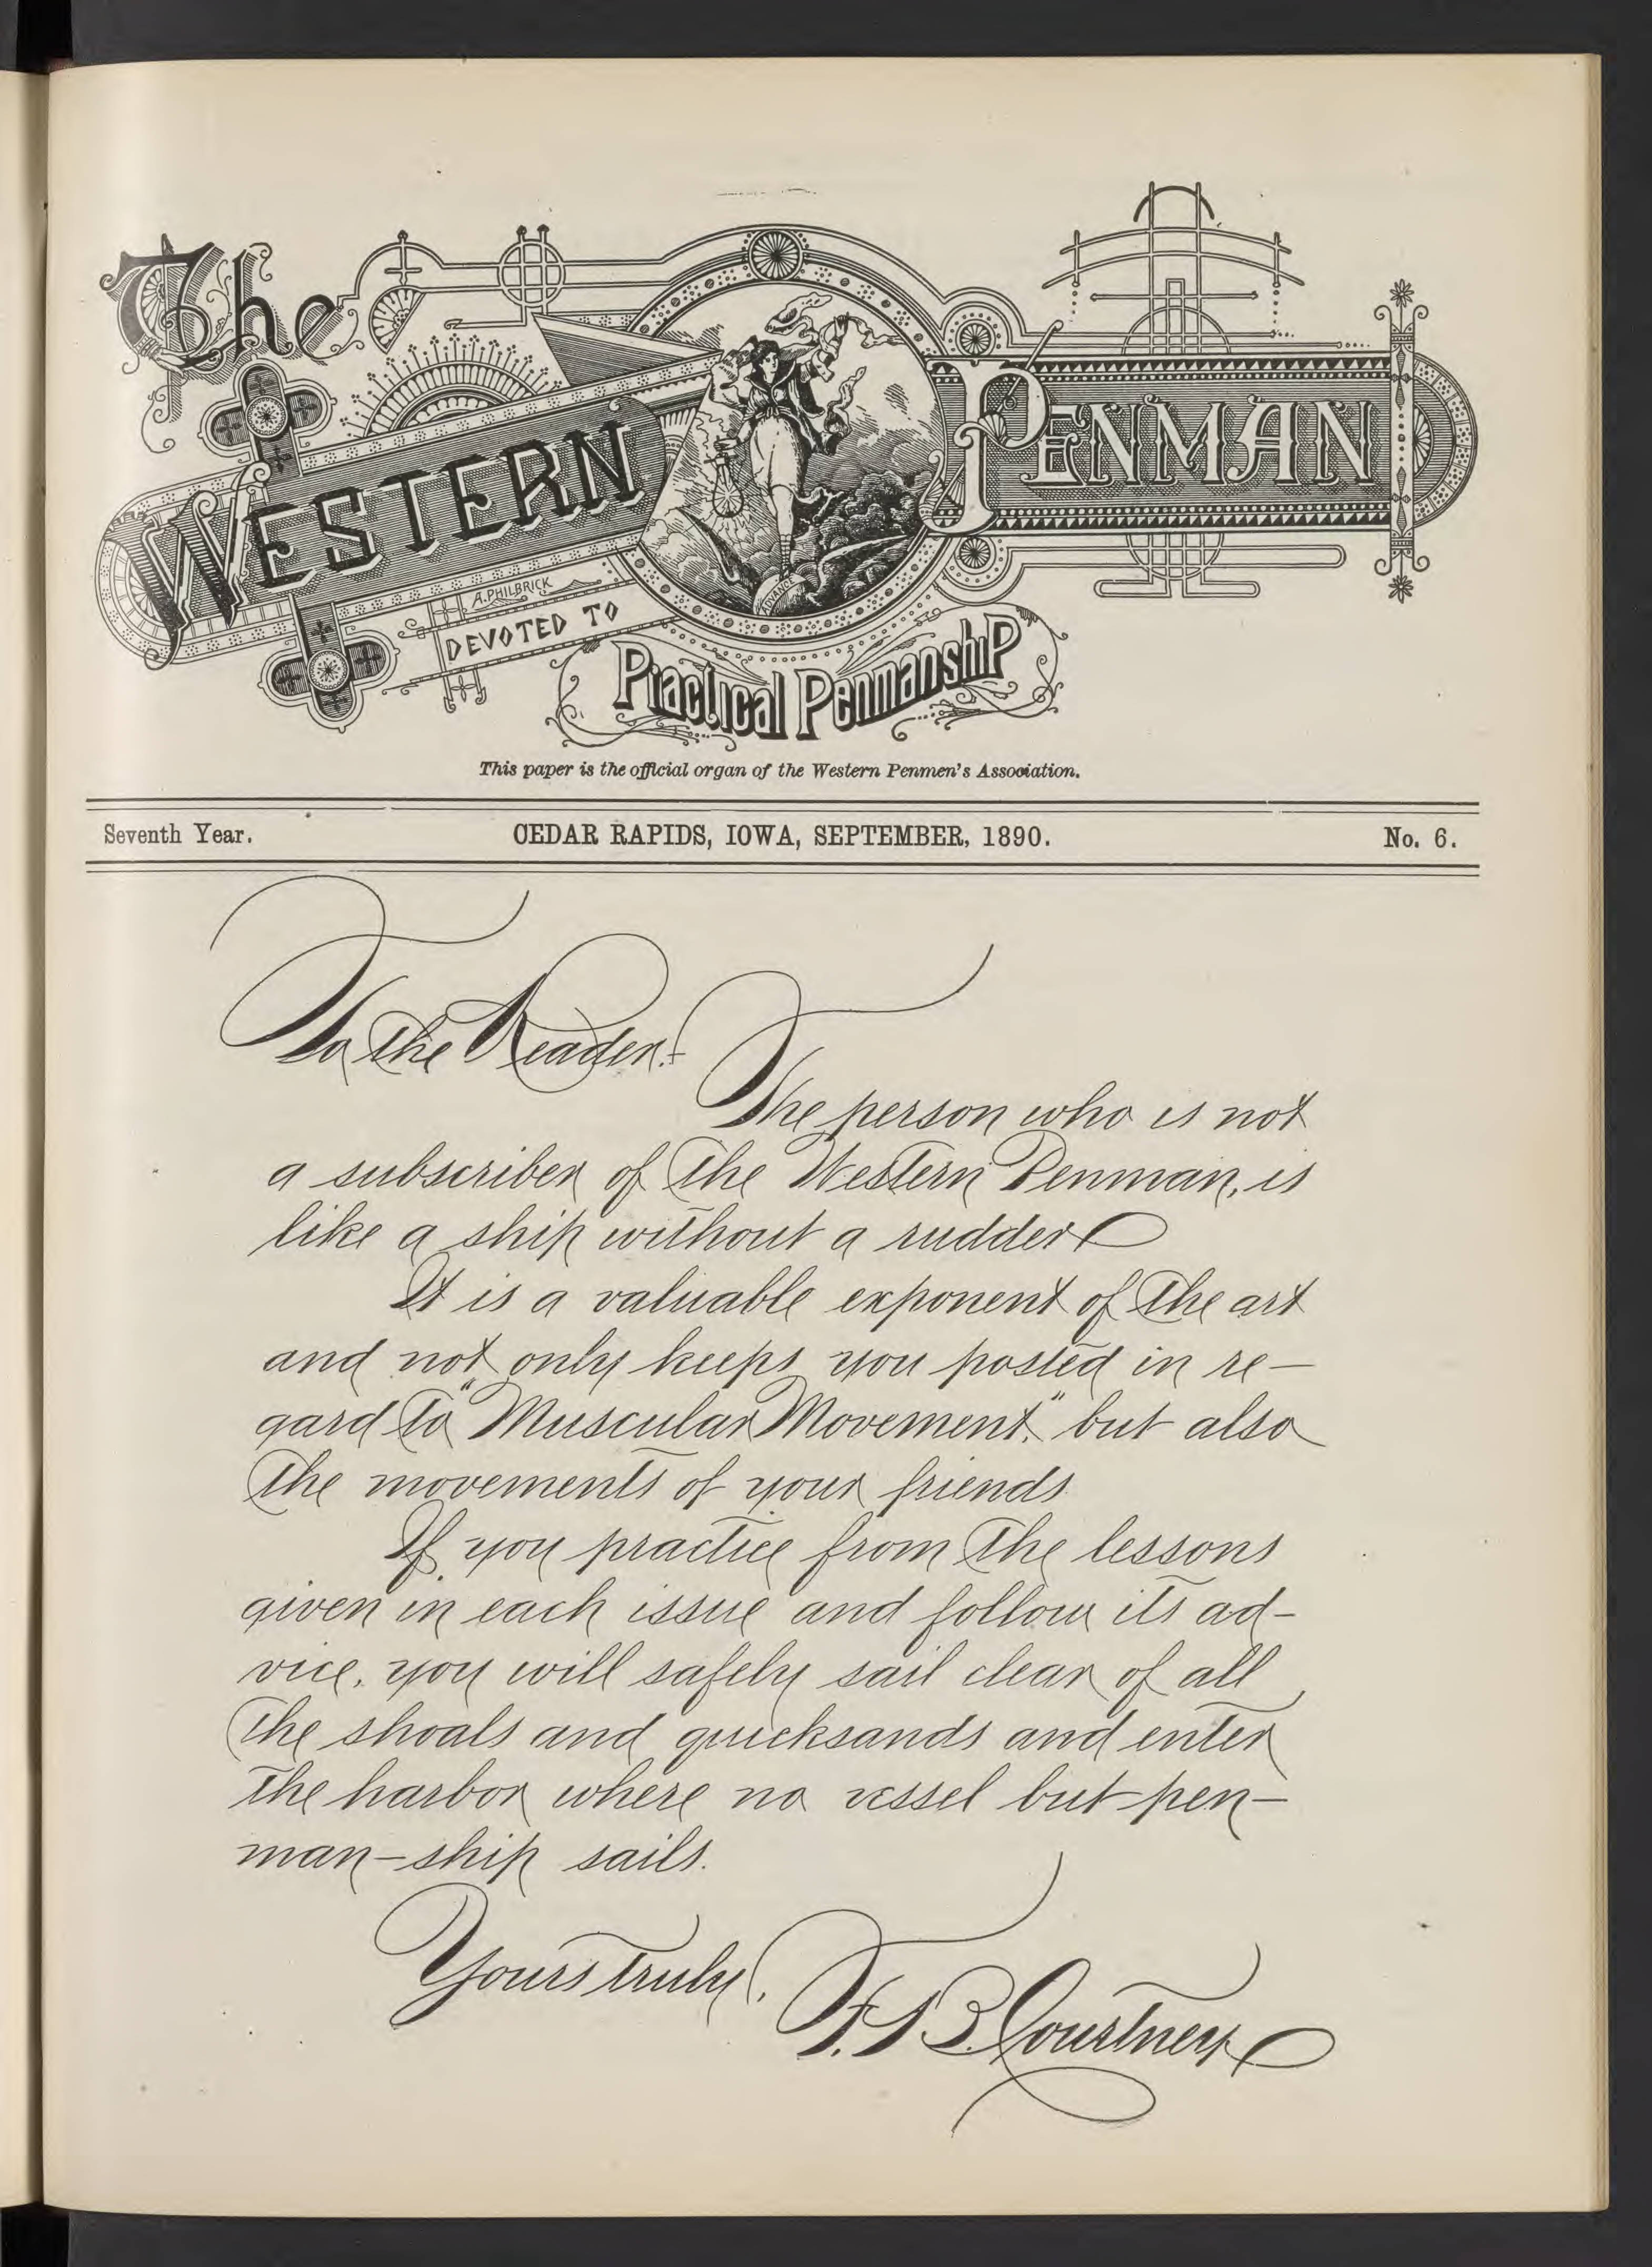 The
WESTERN PENMAN
ADVANCE
A. PHILBRICK
DEVOTED TO
Practical Penmanship
This paper is the official organ of the Western Penmen's Association.
Seventh Year. CEDAR RAPIDS, IOWA, SEPTEMBER, 1890. No. 6.
To the Reader:
The person who is not
a subscriber of the Western Penman, is
like a ship without a rudder
It is a valuable exponent of the art
and not only keeps you posted in re-
gard to "Muscular Movement," but also
the movements of your friends
If you practice from the lessons
given in each issue and follow its ad-
vice, you will safely sail clear of all
the shoals and quicksands and enter
the harbor where no vessel but pen-
man-ship sails.
Yours truly,
F. B. Courtney